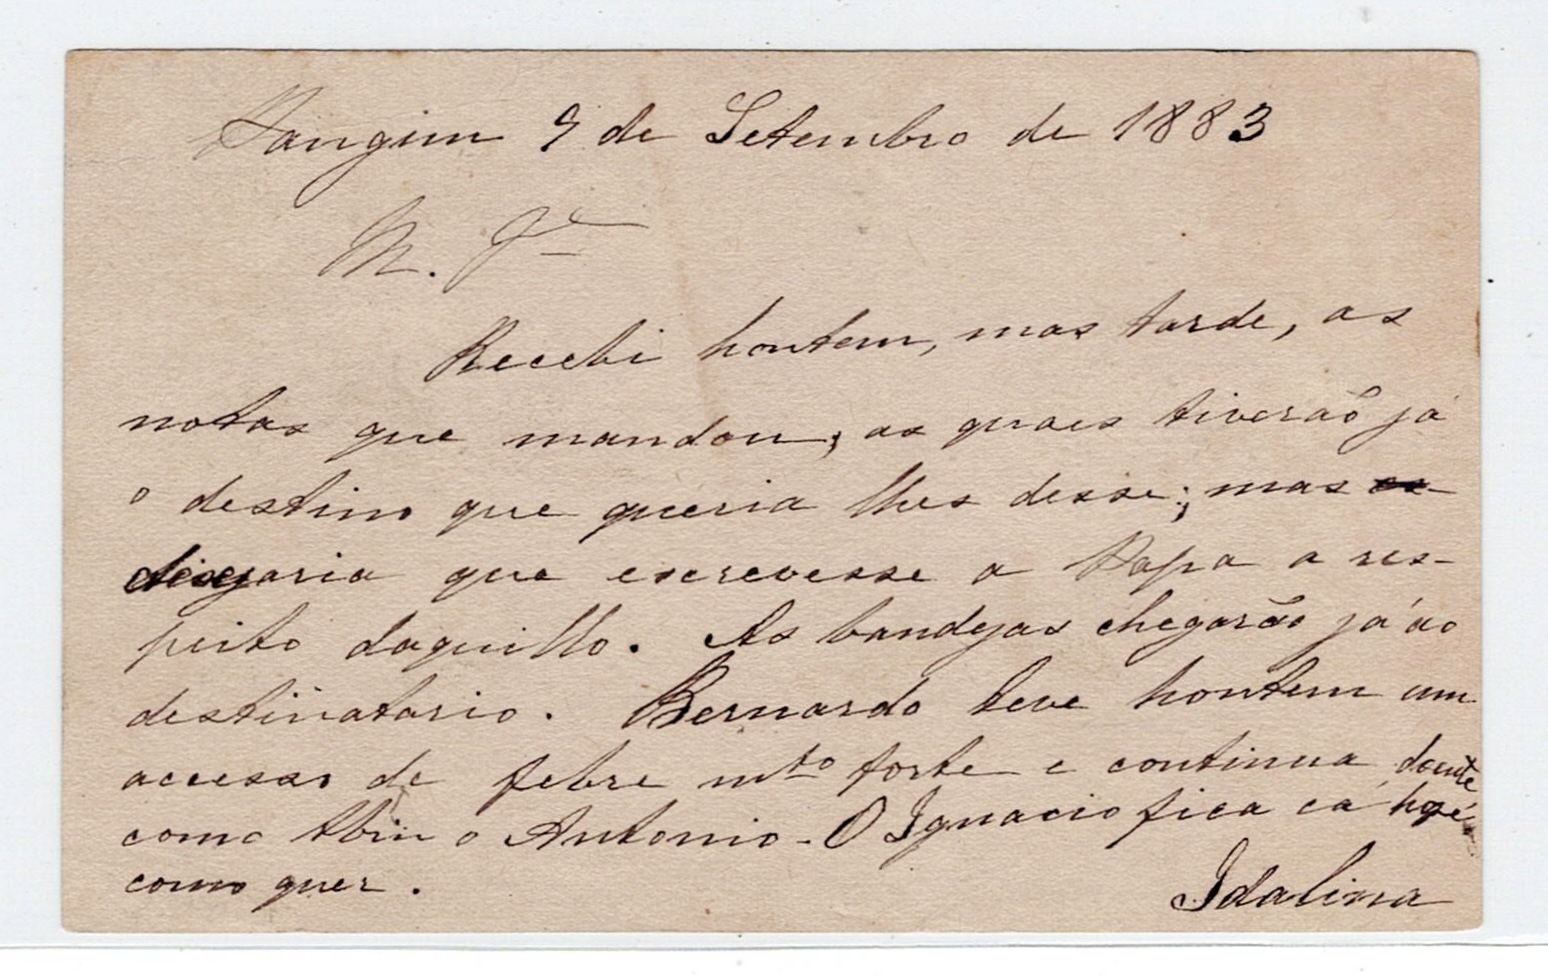 Pangim 9 de Setembro de 1883
M.
Recebi hontem, mas tarde, as
notas que mandou, as quaes tiverão já
o destino que queria lhes desse; mas
que escrevesse a Papa a res-
peito daquillo. As bandejas chegarão já ao
destinatario. Bernardo teve hontem um
accesso de febre mto forte e continua doente
como tbin o Antonio - O Ignacio fica cá hoje
como quer.
Idalina